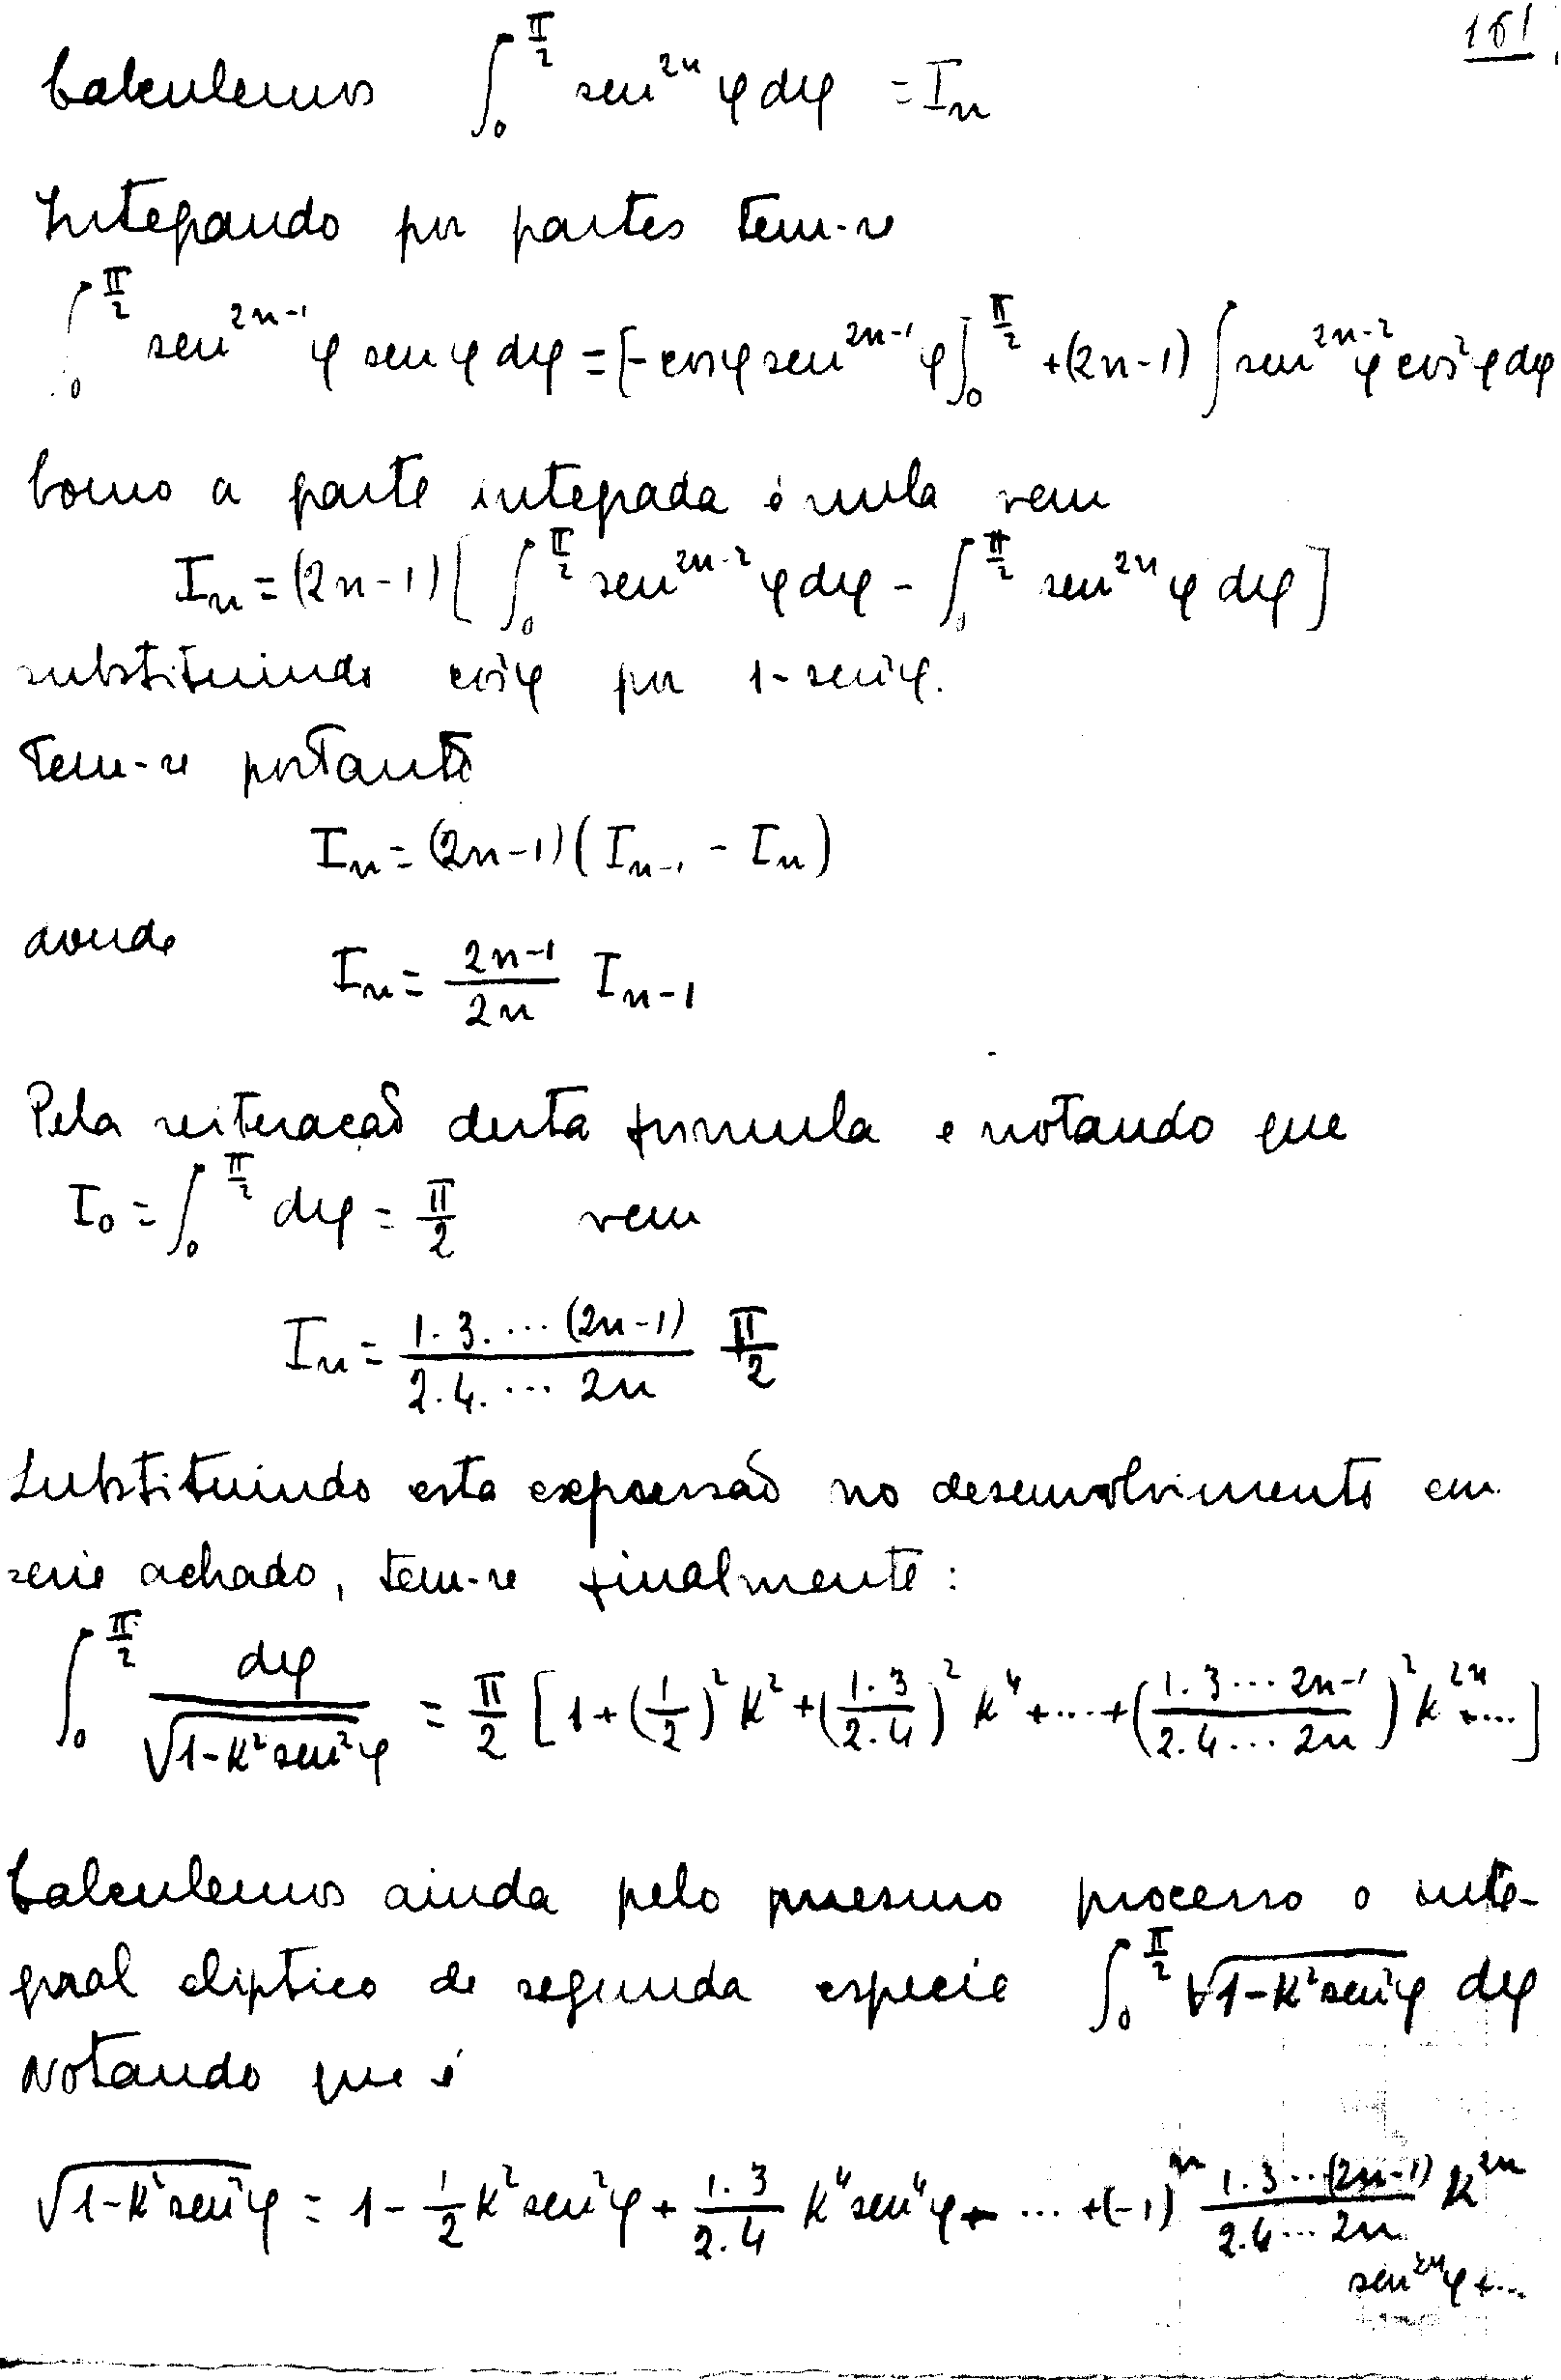 161.
Calculemos ∫₀^{π/2} sen^{2n} φ dφ = Iₙ
Integrando por partes tem-se
∫₀^{π/2} sen^{2n-1} φ sen φ dφ = [-cos φ sen^{2n-1} φ]₀^{π/2} + (2n-1) ∫ sen^{2n-2} φ cos² φ dφ
Como a parte integrada é nula vem
Iₙ = (2n-1) [ ∫₀^{π/2} sen^{2n-2} φ dφ - ∫₀^{π/2} sen^{2n} φ dφ ]
substituindo cos²φ por 1-sen²φ.
Tem-se portanto
Iₙ = (2n-1) ( Iₙ₋₁ - Iₙ )
donde
Iₙ = \frac{2n-1}{2n} Iₙ₋₁
Pela reiteração desta formula e notando que
I₀ = ∫₀^{π/2} dφ = \frac{π}{2} vem
Iₙ = \frac{1.3.…(2n-1)}{2.4.… 2n} \frac{π}{2}
Substituindo esta expressão no desenvolvimento em
serie achado, tem-se finalmente:
∫₀^{π/2} \frac{dφ}{\sqrt{1-K² sen² φ}} = \frac{π}{2} [ 1 + (\frac{1}{2})² K² + (\frac{1.3}{2.4})² K⁴ + … + (\frac{1.3…2n-1}{2.4…2n})² K^{2n} + … ]
Calculemos ainda pelo mesmo processo o inte-
gral eliptico de segunda especie ∫₀^{π/2} \sqrt{1-K² sen² φ} dφ
Notando que é
\sqrt{1-K² sen² φ} = 1 - \frac{1}{2} K² sen² φ + \frac{1.3}{2.4} K⁴ sen⁴ φ + … + (-1)ⁿ \frac{1.3…(2n-1)}{2.4…2n} K^{2n}
sen^{2n} φ + …